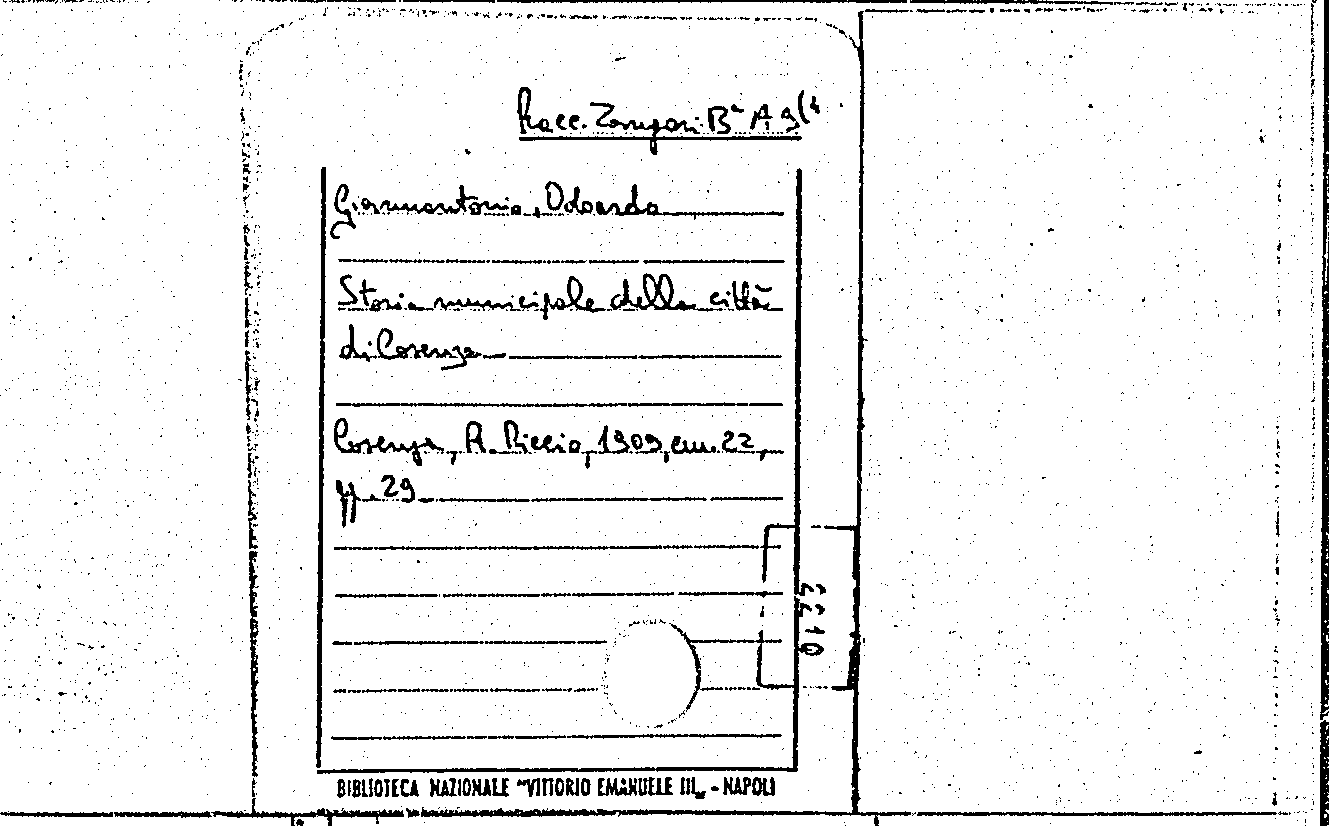 Racc. Zangari Bª A 9(4
Giannantonio, Odoardo
Storia municipale della città
di Cosenza
Cosenza, R. Riccio, 1909, cm. 22,
pp. 29
2210
BIBLIOTECA NAZIONALE "VITTORIO EMANUELE III„ - NAPOLI